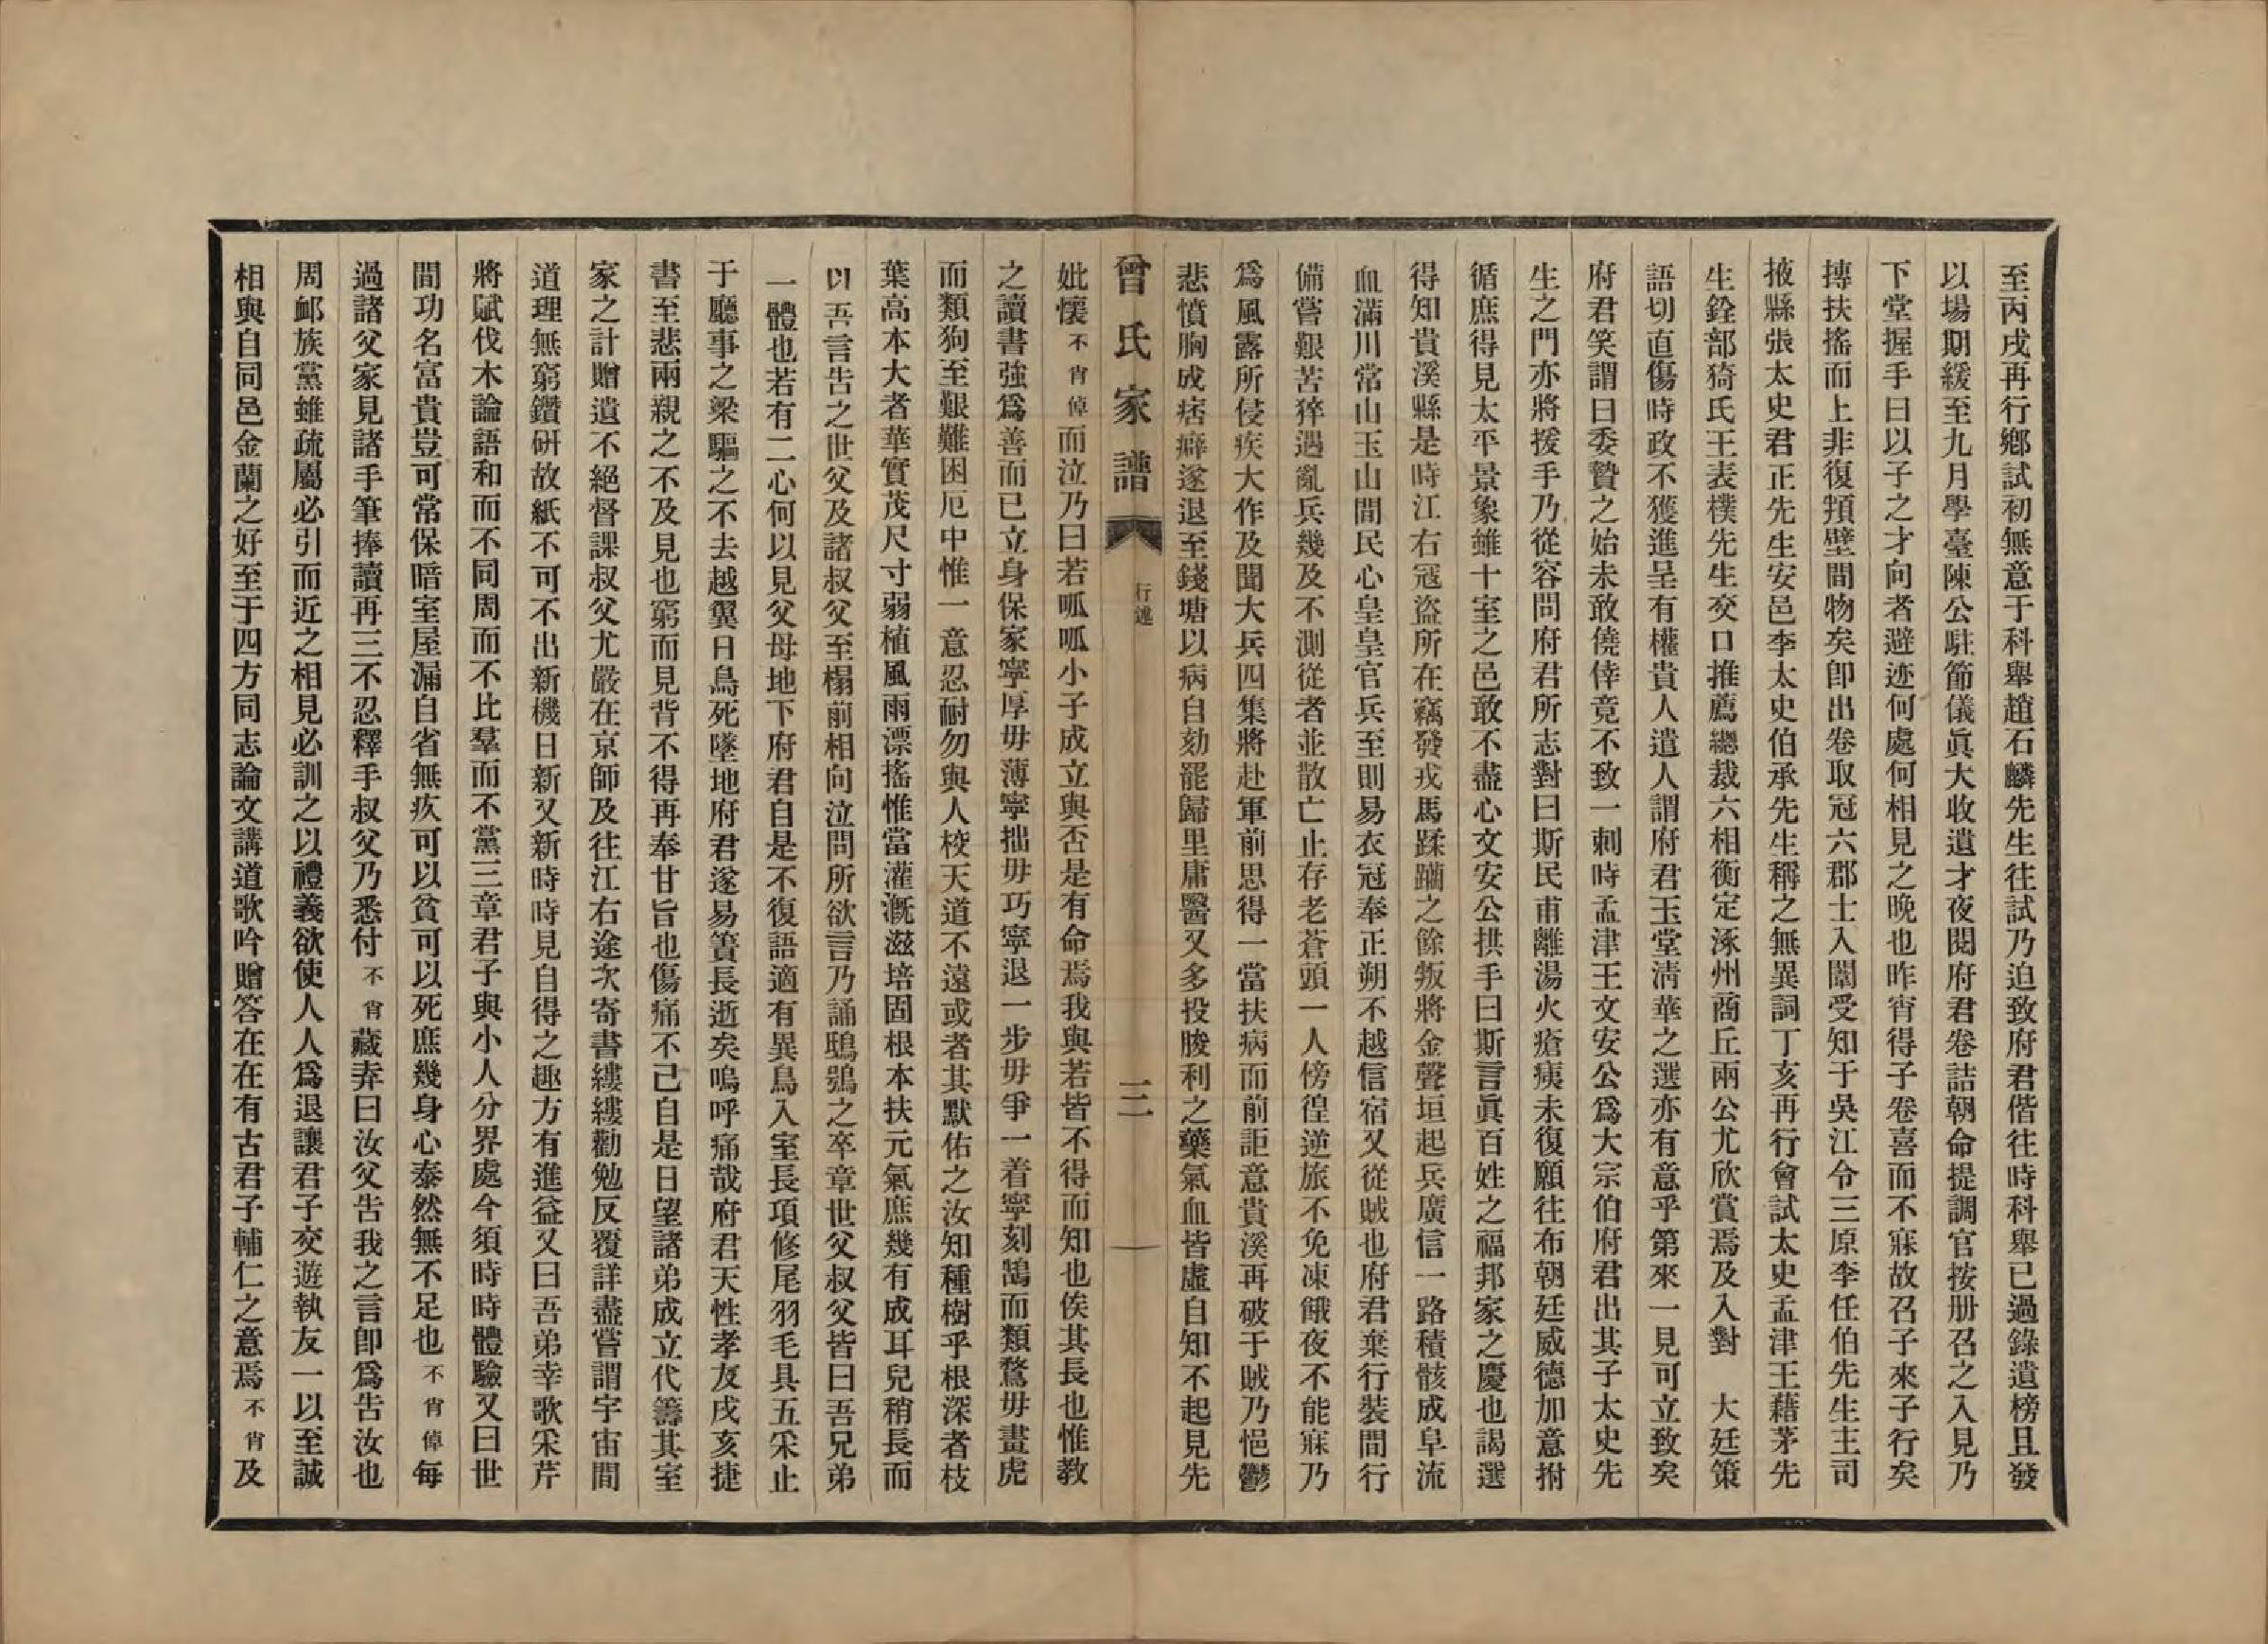 至丙戌再行鄉試初無意于科舉趙石麟先生往試乃迫致府君偕往時科舉已過錄遺榜且發
以場期緩至九月學臺陳公駐節儀眞大收遺才夜閱府君卷詰朝命提調官按册召之入見乃
下堂握手曰以子之才向者避迹何處何相見之晚也昨宵得子卷喜而不寐故召子來子行矣
摶扶搖而上非復頖壁間物矣卽出卷取冠六郡士入闈受知于吳江令三原李任伯先生主司
掖縣張太史君正先生安邑李太史伯承先生稱之無異詞丁亥再行會試太史孟津王藉茅先
生銓部猗氏王表樸先生交口推薦總裁六相衡定涿州商丘兩公尤欣賞焉及入對　大廷策
語切直傷時政不獲進呈有權貴人遣人謂府君玉堂淸華之選亦有意乎第來一見可立致矣
府君笑謂曰委贄之始未敢僥倖竟不致一刺時孟津王文安公爲大宗伯府君出其子太史先
生之門亦將援手乃從容問府君所志對曰斯民甫離湯火瘡痍未復願往布朝廷威德加意拊
循庶得見太平景象雖十室之邑敢不盡心文安公拱手曰斯言眞百姓之福邦家之慶也謁選
得知貴溪縣是時江右寇盜所在竊發戎馬蹂躪之餘叛將金聲垣起兵廣信一路積骸成阜流
血滿川常山玉山間民心皇皇官兵至則易衣冠奉正朔不越信宿又從賊也府君棄行裝間行
備嘗艱苦猝遇亂兵幾及不測從者並散亡止存老蒼頭一人傍徨逆旅不免凍餓夜不能寐乃
爲風露所侵疾大作及聞大兵四集將赴軍前思得一當扶病而前詎意貴溪再破于賊乃悒鬱
悲憤胸成痞癖遂退至錢塘以病自劾罷歸里庸醫又多投朘利之藥氣血皆虛自知不起見先
曾氏家譜　行述　三
妣懷不肖倬而泣乃曰若呱呱小子成立與否是有命焉我與若皆不得而知也俟其長也惟教
之讀書強爲善而已立身保家寧厚毋薄寧拙毋巧寧退一步毋爭一着寧刻鵠而類鶩毋畫虎
而類狗至艱難困厄中惟一意忍耐勿與人校天道不遠或者其默佑之汝知種樹乎根深者枝
葉高本大者華實茂尺寸弱植風雨漂搖惟當灌漑滋培固根本扶元氣庶幾有成耳兒稍長而
以吾言告之世父及諸叔父至榻前相向泣問所欲言乃誦鴟鴞之卒章世父叔父皆曰吾兄弟
一體也若有二心何以見父母地下府君自是不復語適有異鳥入室長項修尾羽毛具五采止
于廳事之梁驅之不去越翼日鳥死墜地府君遂易簀長逝矣嗚呼痛哉府君天性孝友戌亥捷
書至悲兩親之不及見也窮而見背不得再奉甘旨也傷痛不已自是日望諸弟成立代籌其室
家之計贈遺不絕督課叔父尤嚴在京師及往江右途次寄書縷縷勸勉反覆詳盡嘗謂宇宙間
道理無窮鑽硏故紙不可不出新機日新又新時時見自得之趣方有進益又曰吾弟幸歌采芹
將賦伐木論語和而不同周而不比羣而不黨三章君子與小人分界處今須時時體驗又曰世
間功名富貴豈可常保暗室屋漏自省無疚可以貧可以死庶幾身心泰然無不足也不肖倬每
過諸父家見諸手筆捧讀再三不忍釋手叔父乃悉付不肖藏弆曰汝父告我之言卽爲告汝也
周卹族黨雖疏屬必引而近之相見必訓之以禮義欲使人人爲退讓君子交遊執友一以至誠
相與自同邑金蘭之好至于四方同志論文講道歌吟贈答在在有古君子輔仁之意焉不肖及